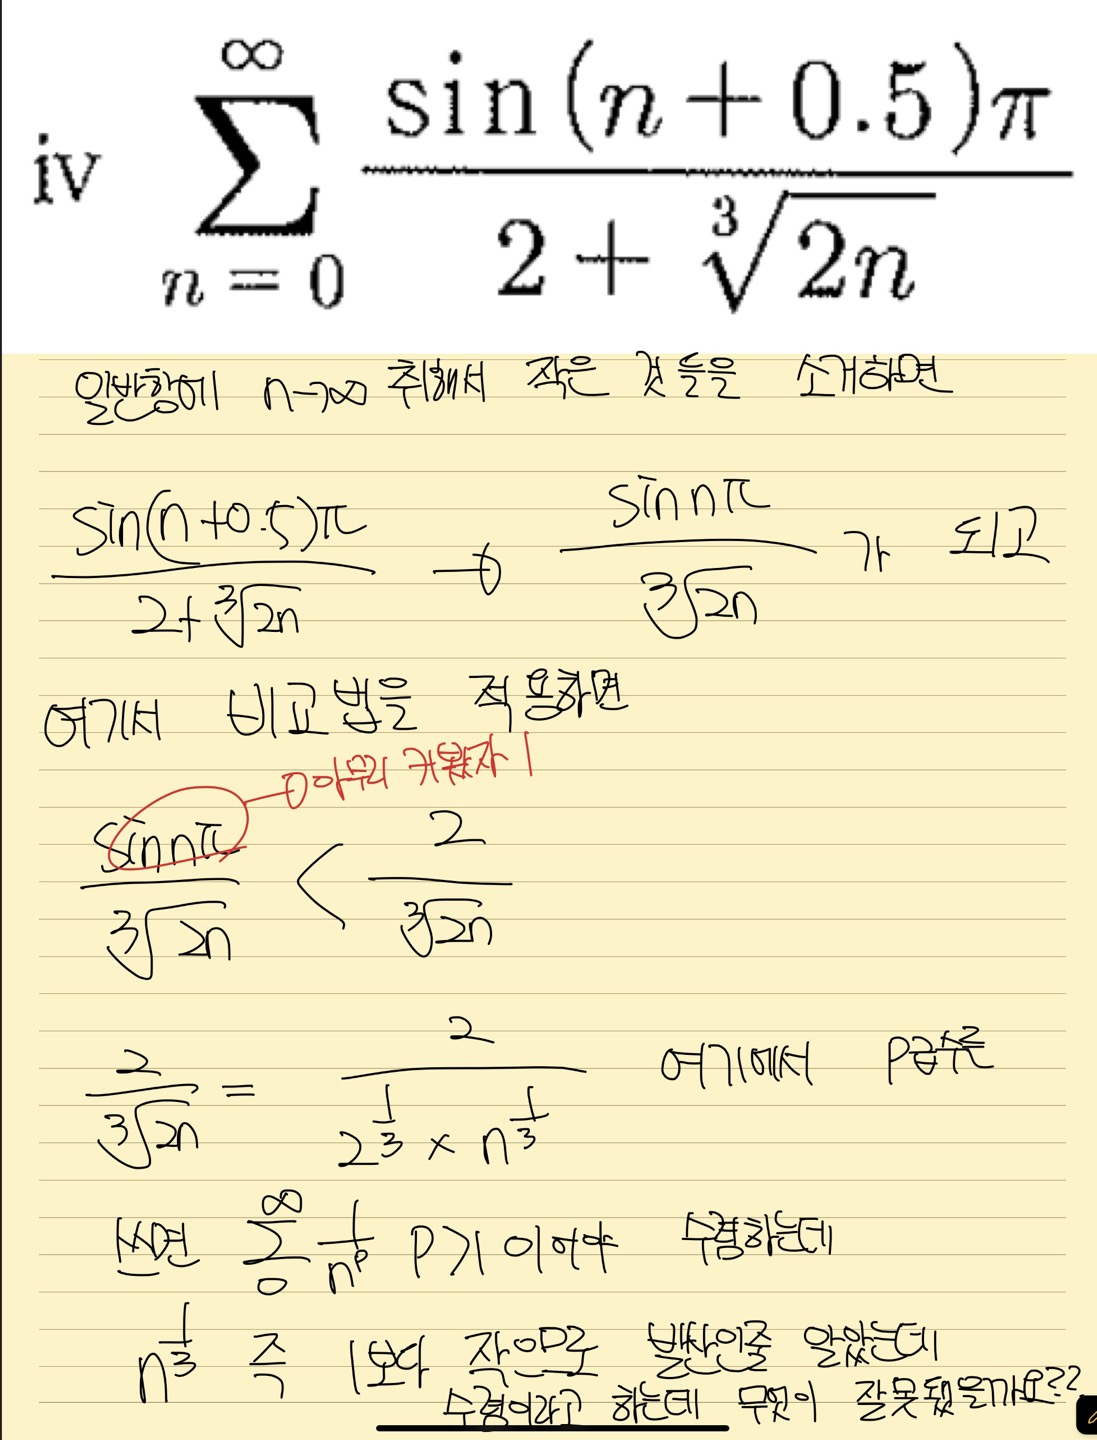 iv ∑_{n=0}^{∞} sin(n+0.5)π / (2+∛(2n))
일반항에 n→∞ 취해서 작은 것들을 소거하면
sin(n+0.5)π / (2+∛(2n)) → sin nπ / ∛(2n) 가 되고
여기서 비교법을 적용하면
아무리 커봤자 1
sin nπ / ∛(2n) < 2 / ∛(2n)
2 / ∛(2n) = 2 / (2^{1/3} × n^{1/3}) 여기에서 P급수를
쓰면 ∑_{0}^{∞} 1/n^p P>1 이어야 수렴하는데
n^{1/3} 즉 1보다 작으므로 발산인줄 알았는데
수렴이라고 하는데 무엇이 잘못됐을까요??